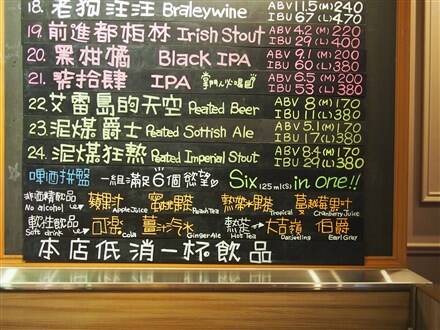 18. 老狗汪汪 Braleywine ABV 11.5 (M) 240
IBU 67 (L) 470
19. 前進都柏林 Irish Stout ABV 4.2 (M) 220
IBU 29 (L) 400
20. 黑柑橘 Black IPA ABV 9.1 (M) 200
IBU 60 (L) 380
21. 柒拾肆 IPA 掌門人必喝 ABV 6.5 (M) 200
IBU 53 (L) 380
22. 艾雷島的天空 Peated Beer ABV 8 (M) 170
IBU 11 (L) 380
23. 泥煤爵士 Peated Sottish Ale ABV 5.1 (M) 170
IBU 17 (L) 380
24. 泥煤狂熱 Peated Imperial Stout ABV 8.4 (M) 170
IBU 29 (L) 380
啤酒拼盤 一組滿足6個慾望 Six 125ml(S) in one!!
非酒精飲品 蘋果汁 蜜桃果茶 熱帶果茶 蔓越莓果汁
No alcohol Apple Juice Peach Tea Tropical Cranberry Juice
軟性飲品 可樂 薑汁汽水 熱茶 大吉嶺 伯爵
Soft drink Cola Ginger Ale Hot Tea Darjeeling Earl Grey
本店低消一杯飲品